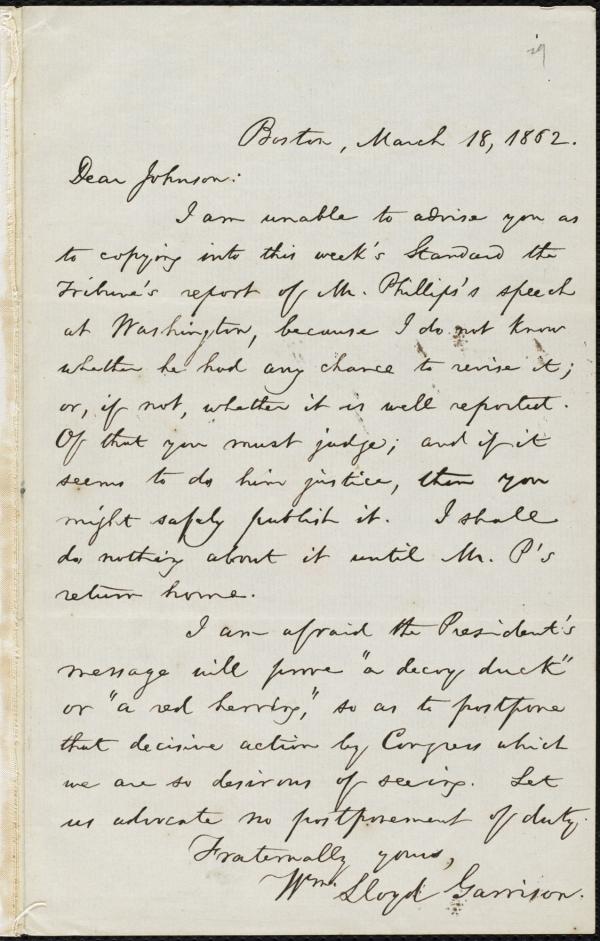 29
Boston, March 18, 1862.
Dear Johnson:
I am unable to advise you as
to copying into this week's Standard the
Tribune's report of Mr. Phillips's speech
at Washington, because I do not know
whether he had any chance to revise it;
or, if not, whether it is well reported.
Of that you must judge; and if it
seems to do him justice, then you
might safely publish it. I shall
do nothing about it until Mr. P's
return home.
I am afraid the President's
message will prove "a decoy duck"
or "a red herring," so as to postpone
that decisive action by Congress which
we are so desirous of seeing. Let
us advocate no postponement of duty.
Fraternally yours,
Wm. Lloyd Garrison.